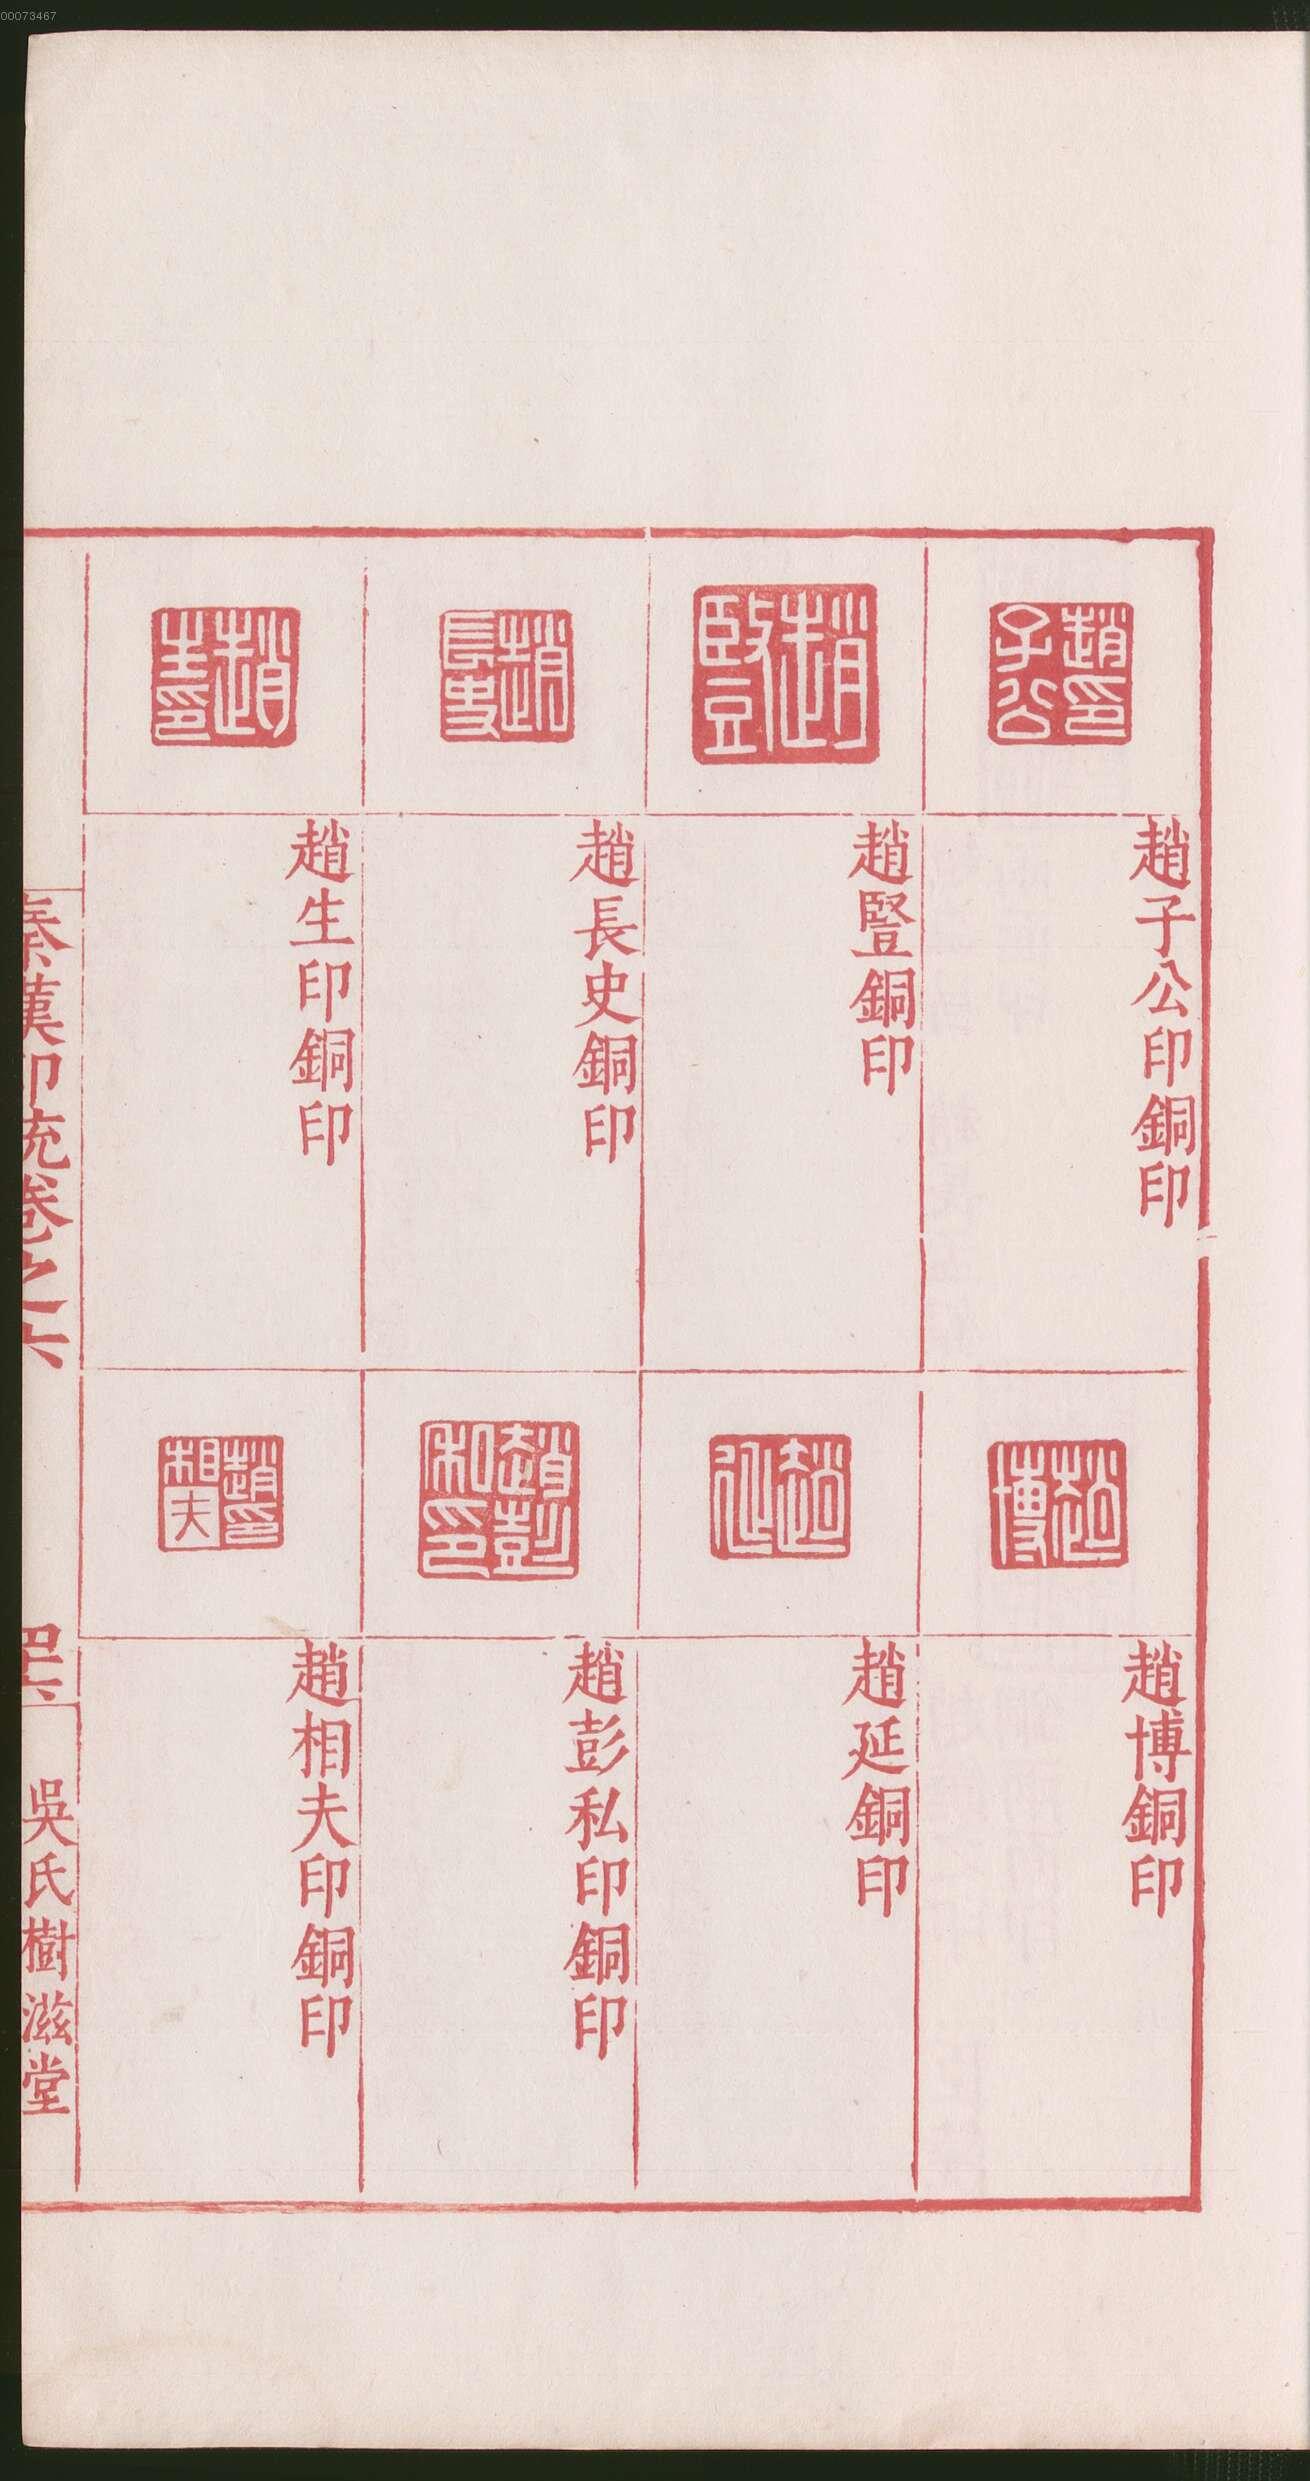 00073467
趙印子公
趙子公印銅印
趙豎
趙豎銅印
趙長史
趙長史銅印
趙生印
趙生印銅印
趙博
趙博銅印
趙延
趙延銅印
趙彭私印
趙彭私印銅印
趙印相夫
趙相夫印銅印
秦漢印統卷之六
吳氏樹滋堂